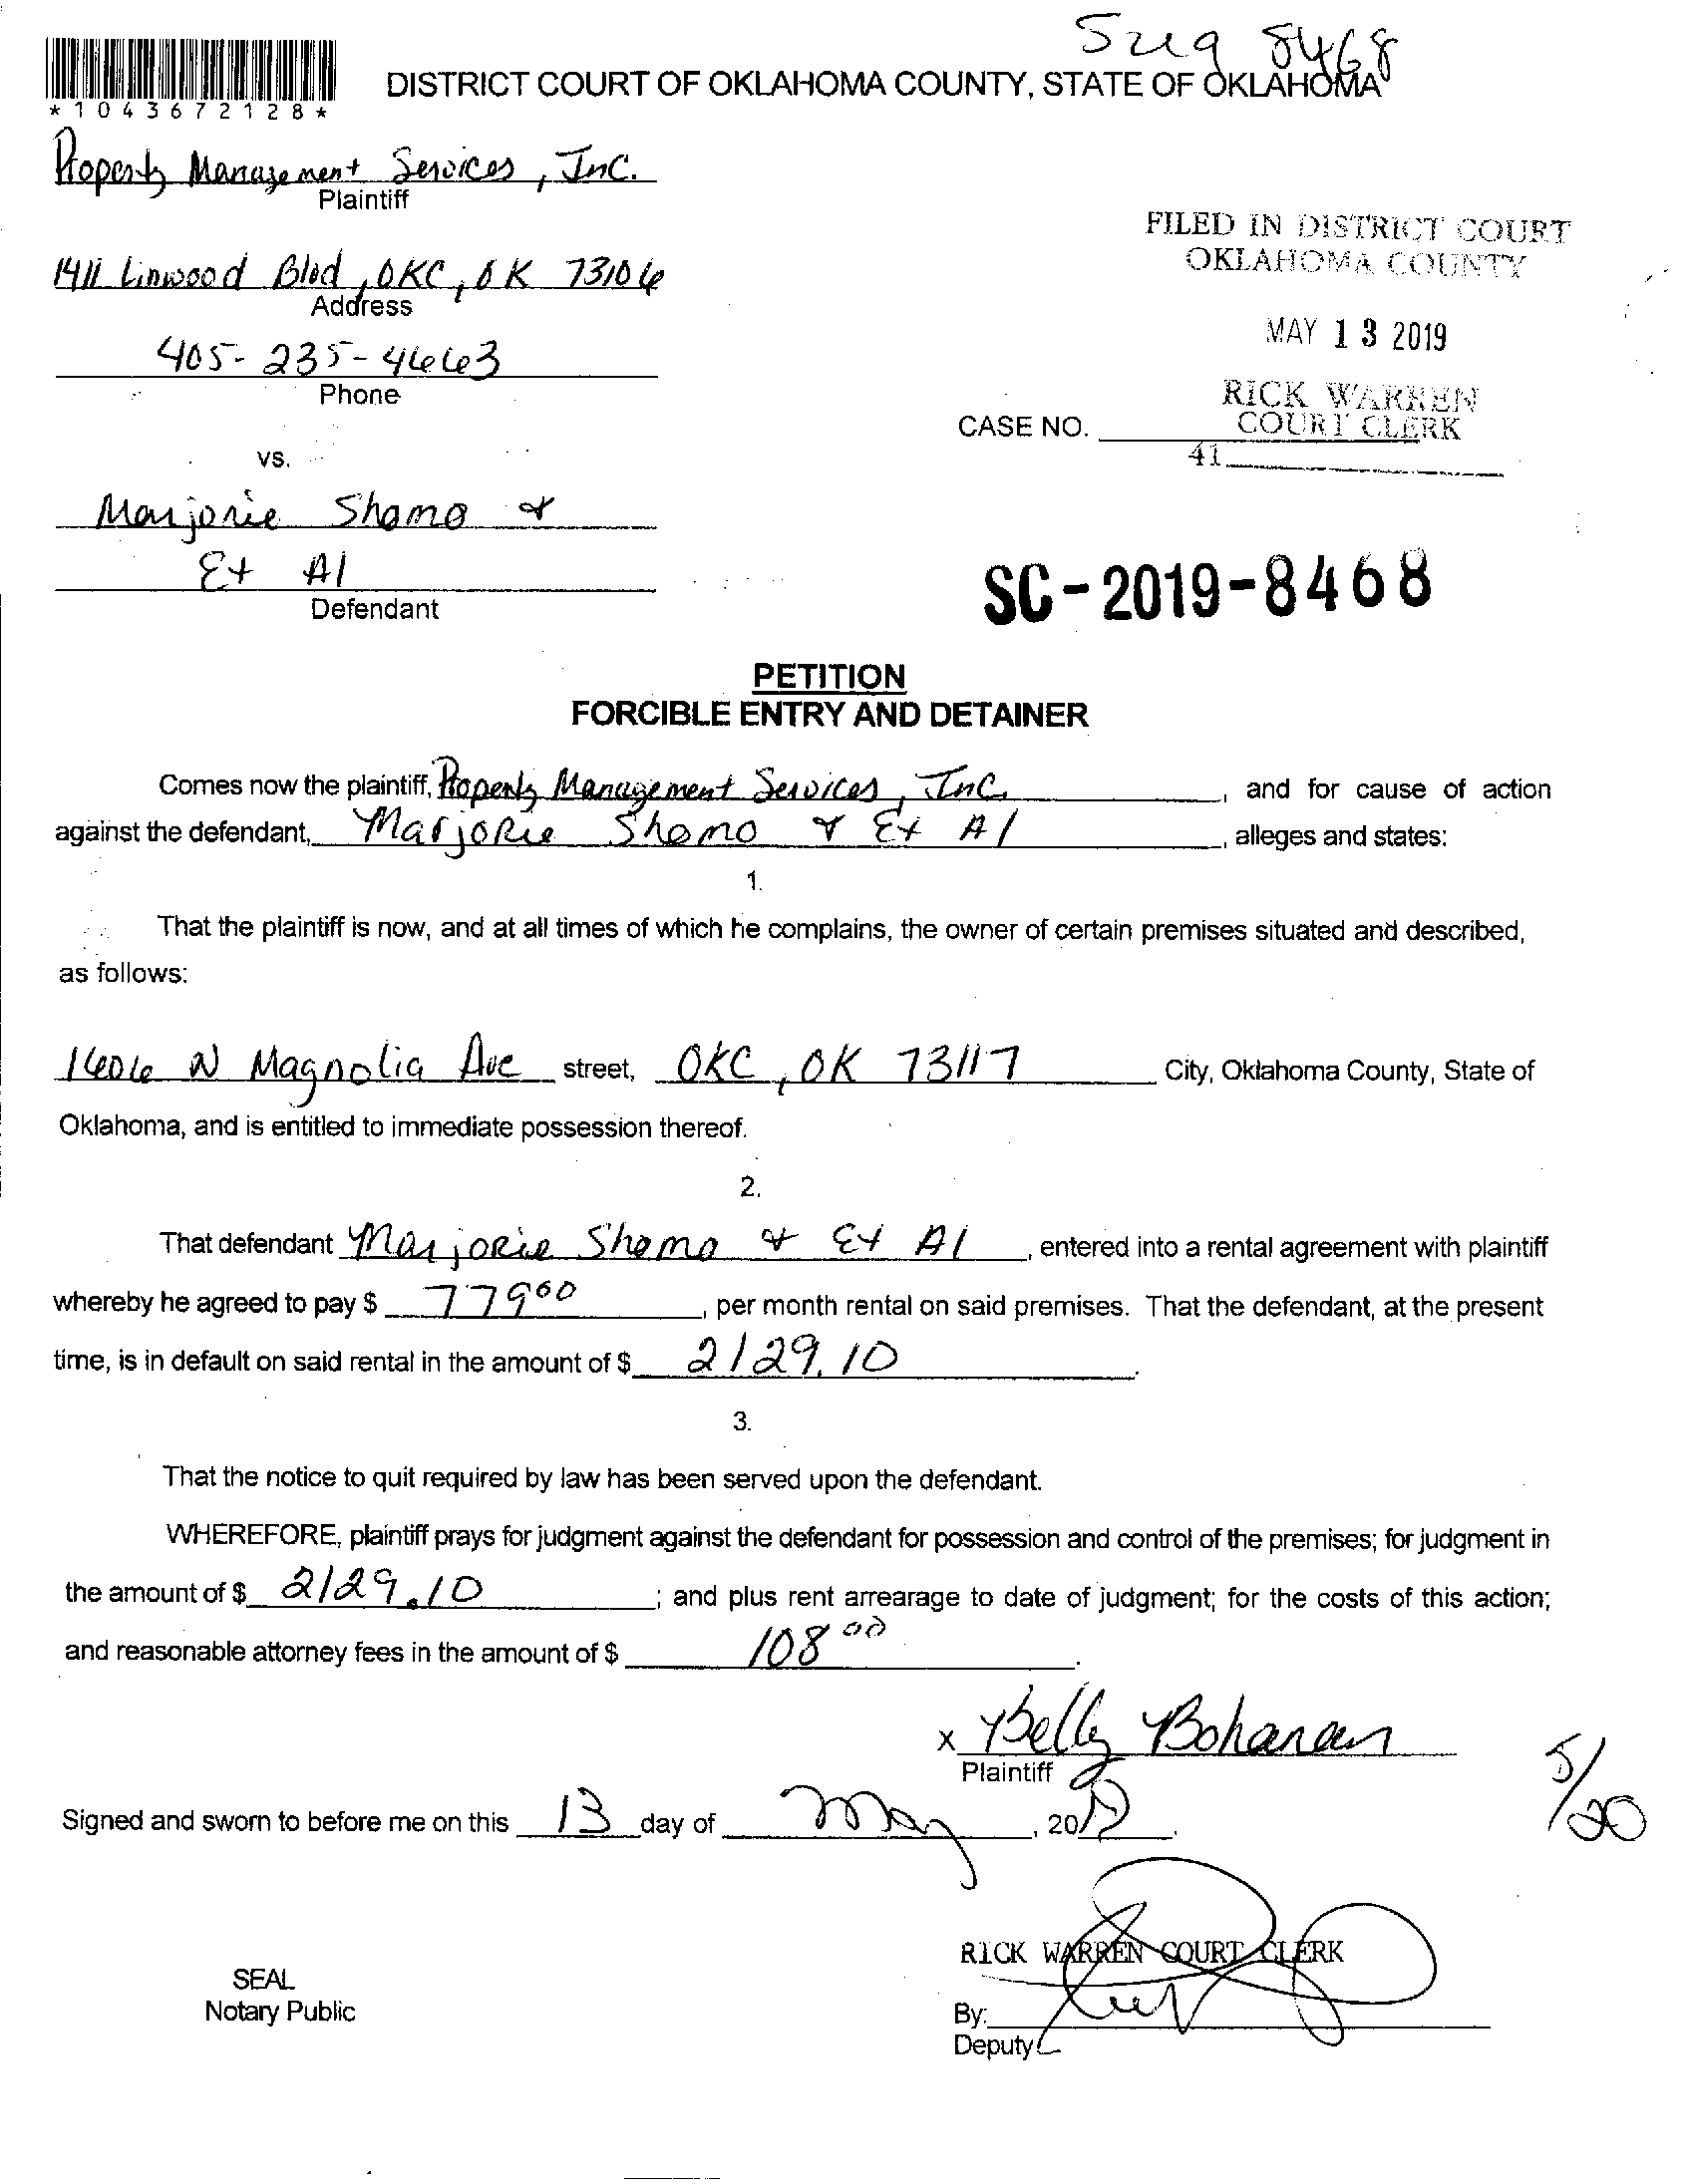 8468
DISTRICT COURT OF OKLAHOMA COUNTY, STATE OF OKLAHOMA
*1043672128*
Property Management Services, Inc.
Plaintiff
FILED IN DISTRICT COURT
OKLAHOMA COUNTY
1411 Linwood Blvd, OKC, OK 73106
Address
MAY 13 2019
405-235-4663
Phone
RICK WARREN
COURT CLERK
CASE NO.
41
vs.
Marjorie Shomo &
Et Al
Defendant
SC-2019-8468
PETITION
FORCIBLE ENTRY AND DETAINER
Comes now the plaintiff, Property Management Services, Inc., and for cause of action
against the defendant, Marjorie Shomo & Et Al, alleges and states:
1.
That the plaintiff is now, and at all times of which he complains, the owner of certain premises situated and described,
as follows:
1606 N Magnolia Ave street, OKC, OK 73117 City, Oklahoma County, State of
Oklahoma, and is entitled to immediate possession thereof.
2.
That defendant Marjorie Shomo & Et Al, entered into a rental agreement with plaintiff
whereby he agreed to pay $ 779 00, per month rental on said premises. That the defendant, at the present
time, is in default on said rental in the amount of $ 2129.10.
3.
That the notice to quit required by law has been served upon the defendant.
WHEREFORE, plaintiff prays for judgment against the defendant for possession and control of the premises; for judgment in
the amount of $ 2129.10; and plus rent arrearage to date of judgment; for the costs of this action;
and reasonable attorney fees in the amount of $ 108 00.
x Kelly Bohanan
Plaintiff
5/20
Signed and sworn to before me on this 13 day of May, 2019.
RICK WARREN COURT CLERK
SEAL
Notary Public
By:
Deputy